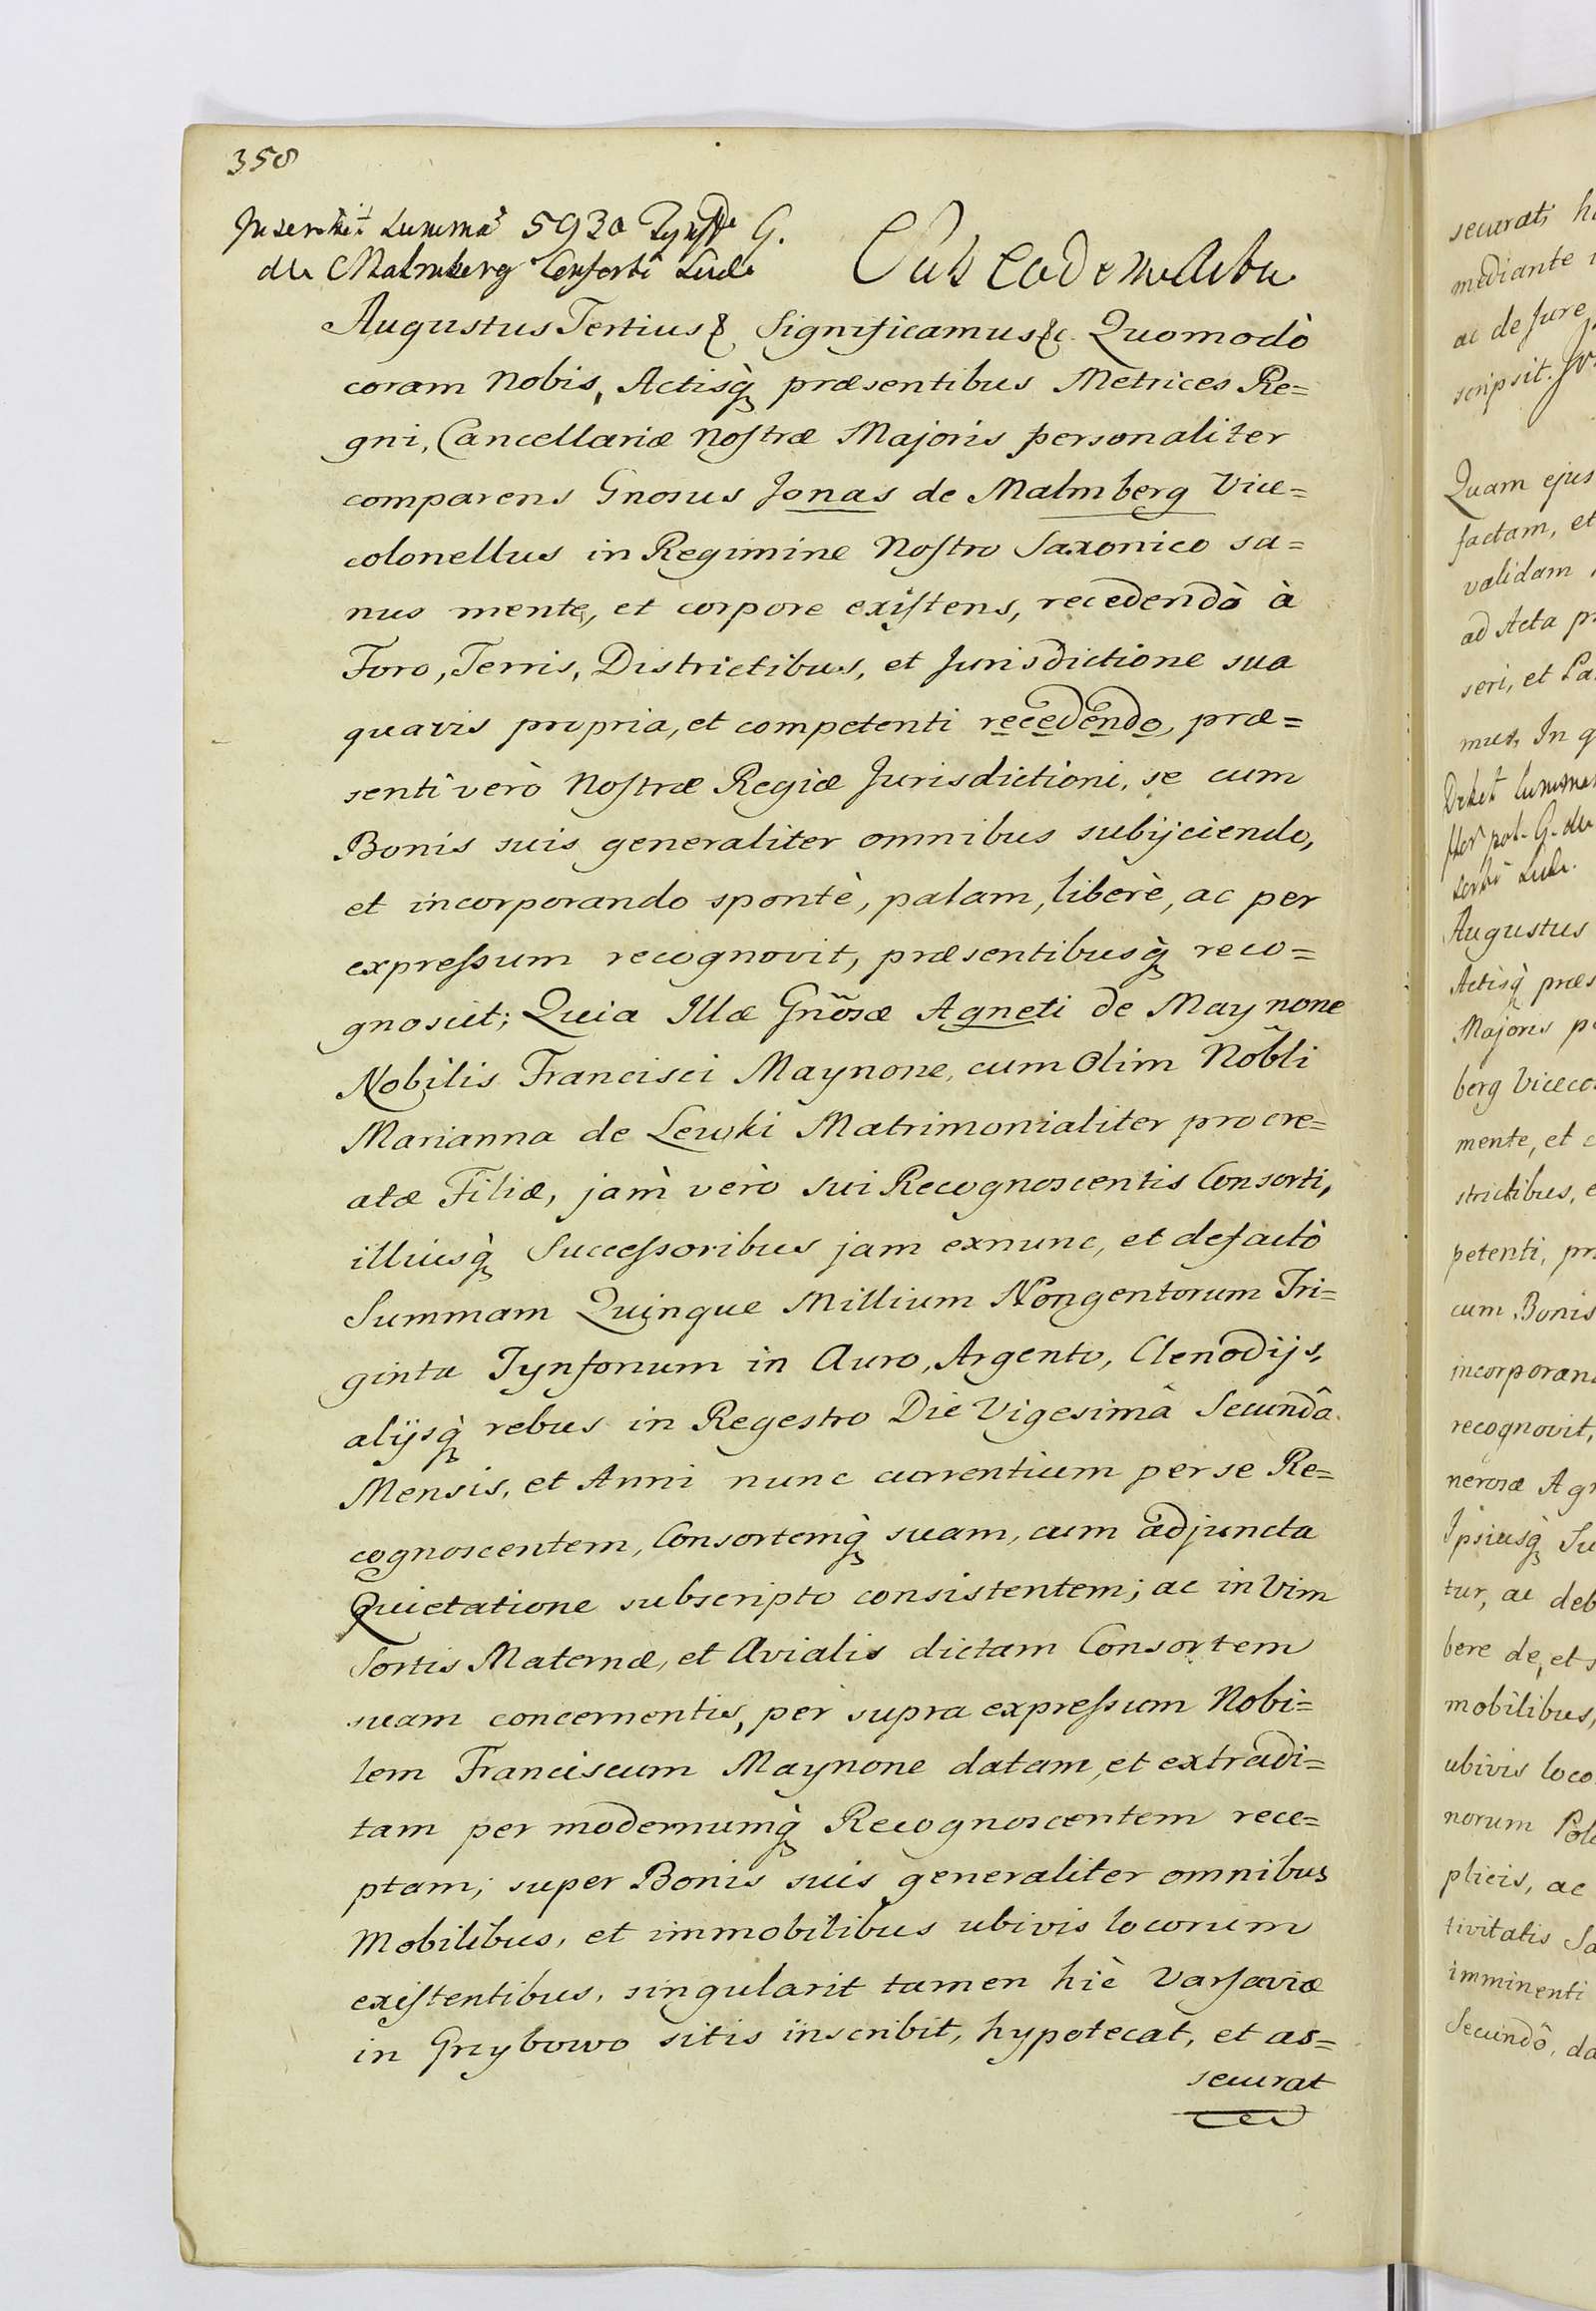 358
Inscribit Summã 5930 Tynff. G.
de Malmberg Consorti Suæ
Sub eodem Actu
Augustus Tertius &c Significamus &c. Quomodò
coram Nobis, Actisq̀ præsentibus Metrices Re=
gni, Cancellariæ Nostræ Majoris personaliter
comparens Gnosus Jonas de Malmberg Vice=
colonellus in Regimine Nostro Saxonico sa=
nus mente, et corpore existens, recedendò à
Foro, Terris, Districtibus, et Jurisdictione sua
quavis propria, et competenti recedendo, præ=
senti verò Nostræ Regiæ Jurisdictioni, se cum
Bonis suis generaliter omnibus subijciendo,
et incorporando spontè, palam, liberè, ac per
expressum recognovit, præsentibusq̀ reco=
gnoscit; Quia Illa Gñosæ Agneti de Maynone
Nobilis Francisci Maynone, cum Olim Nobli
Marianna de Lewski Matrimonialiter procre=
atæ Filiæ, jam̀ verò sui Recognoscentis Consorti,
illiusq̀ Successoribus jam exnunc, et defactò
Summam Quinque Millium Nongentorum Tri=
ginta Tynfonum in Auro, Argento, Clenodijs,
alijsq̀ rebus in Regestro Die Vigesimâ Secundâ
Mensis, et Anni nunc currentium per se Re=
cognoscentem, Consortemq̀ suam, cum adjuncta
Quietatione subscripto consistentem; ac in Vim
Sortis Maternæ, et Avialis dictam Consortem
suam concernentis, per supra expressum Nobi=
lem Franciscum Maynone datam, et extradi=
tam per modernumq̀ Recognoscentem rece=
ptam; super Bonis suis generaliter omnibus
Mobilibus, et immobilibus ubivis locorum
existentibus, singularit tamen hìc Varsaviæ
in Grzybowo sitis inscribit, hypotecat, et as=
securat
securat, h
mediante
ac de Jure
scripsit.
Quam ejus
factam, et
validam
ad Acta pr
seri, et
mus, In q
Debet Summam
flor pol. G. de
sorti Suæ.
Augustus
Actisq̀ præs
Majoris p
berg Viceco
mente, et c
strictibus, e
petenti, pr
cum Bonis
incorporan
recognovit,
nerosæ Agn
Ipsiusq̀ Su
tur, ac deb
bere de, et s
mobilibus,
ubivis loco
norum Polo
plicis, ac
tivitatis Sa
imminenti
Secundô, da